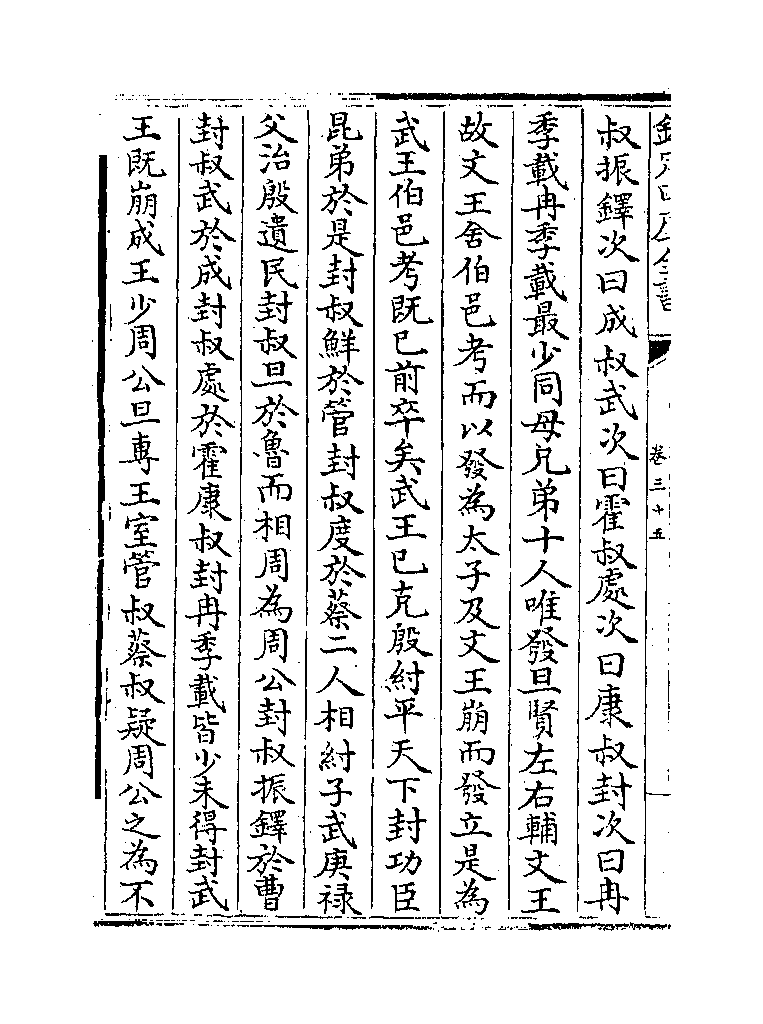 欽定四庫全書
卷三十五
叔振鐸次曰成叔武次曰霍叔處次曰康叔封次曰冉
季載冉季載最少同母兄弟十人唯發旦賢左右輔文王
故文王舍伯邑考而以發為太子及文王崩而發立是為
武王伯邑考既已前卒矣武王已克殷紂平天下封功臣
昆弟於是封叔鮮於管封叔度於蔡二人相紂子武庚祿
父治殷遺民封叔旦於魯而相周為周公封叔振鐸於曹
封叔武於成封叔處於霍康叔封冉季載皆少未得封武
王既崩成王少周公旦專王室管叔蔡叔疑周公之為不